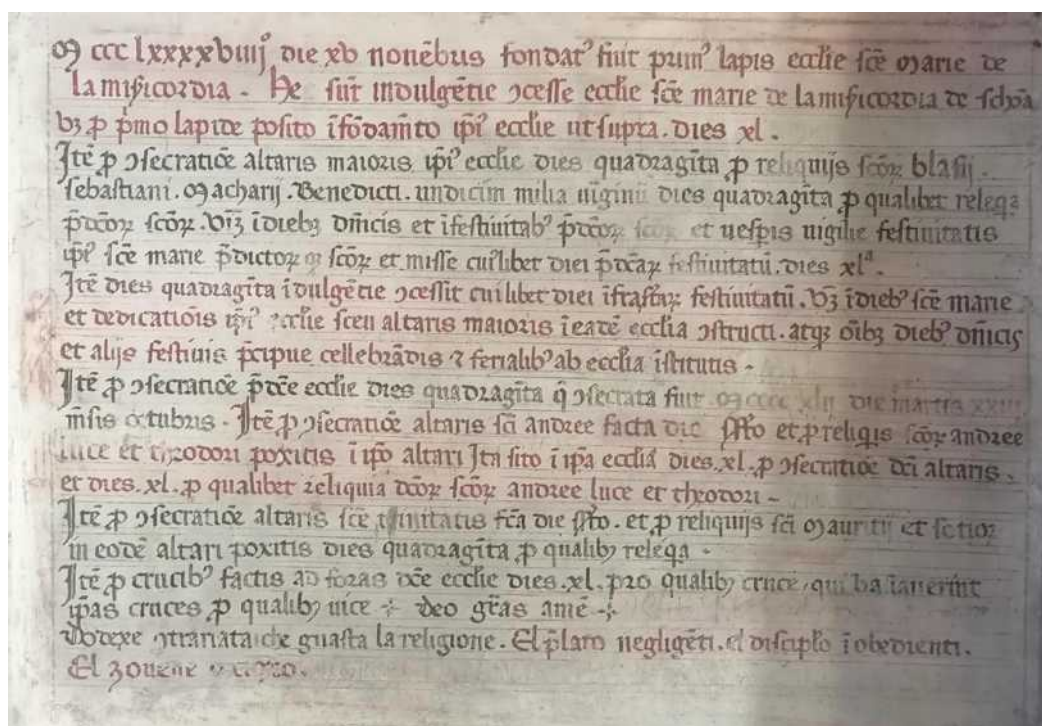 M ccc lxxxxviiij die xv novēbus fondat' fuit prim' lapis ecclie scē Marie de
la mīsicordia . He sūt indulgētie ɔcesse ecclie scē marie de la mīsicordia de
bȝ ꝑ pmo lapide posito ī fōdamto ipi' ecclie ut supra . dies xl .
Itē ꝑ ɔsecratiōe altaris maioris ipi' ecclie dies quadragīta ꝑ reliquijs scōꝝ blasij .
sebastiani . Macharij . Benedicti . undicim milia uiginū dies quadragīta ꝑ qualibet releqa
p̄dcōꝝ scōꝝ . Vȝ ī diebȝ dm̄icis et ī festiuitab' p̄dcōꝝ scōꝝ et uesp̄is uigilie festiuitatis
ipi' scē marie p̄dictoꝝ scōꝝ et misse cuilibet diei p̄dcāꝝ festiuitatū . dies xlᵃ .
Itē dies quadragīta īdulgētie ɔcessit cuilibet diei īfrasc̄aꝝ festiuitatū . Vȝ ī dieb' scē marie
et dedicatiōis ipi' ecclie sceu altaris maioris ī eadē ecclia ɔstructi . atqȝ oībȝ dieb' dm̄icis
et alijs festiuis p̄cipue cellebrādis ⁊ ferialib' ab ecclia īstitutis -
Itē ꝑ ɔsecratiōe p̄dcē ecclie dies quadragīta q̄ ɔsecrata fuit M cccc xlij die martis xxiii
mēsis octubris - Itē ꝑ ɔsecratiōe altaris scī andree facta die et ꝑ reliqis scōꝝ andree
luce et theodori poxitis ī ipo altari Ita sito ī ipa ecclia dies . xl . ꝑ ɔsecratiōe dci altaris .
et dies . xl . ꝑ qualibet reliquia dcōꝝ scōꝝ andree luce et theodori -
Itē ꝑ ɔsecratiōe altaris scē trinitatis fcā die et ꝑ reliquijs scī Mauritij et sotioꝝ
in eodē altari poxitis dies quadragīta ꝑ qualibȝ releqa -
Itē ꝑ crucib' factis ad foras dcē ecclie dies . xl . pro qualibȝ cruce , qui baxauerint
ipas cruces ꝑ qualibȝ uice ⁘ deo grās amē ⁘
che guasta la religione . El p̄lato negligēti . el disciplo īobedienti .
El zouene